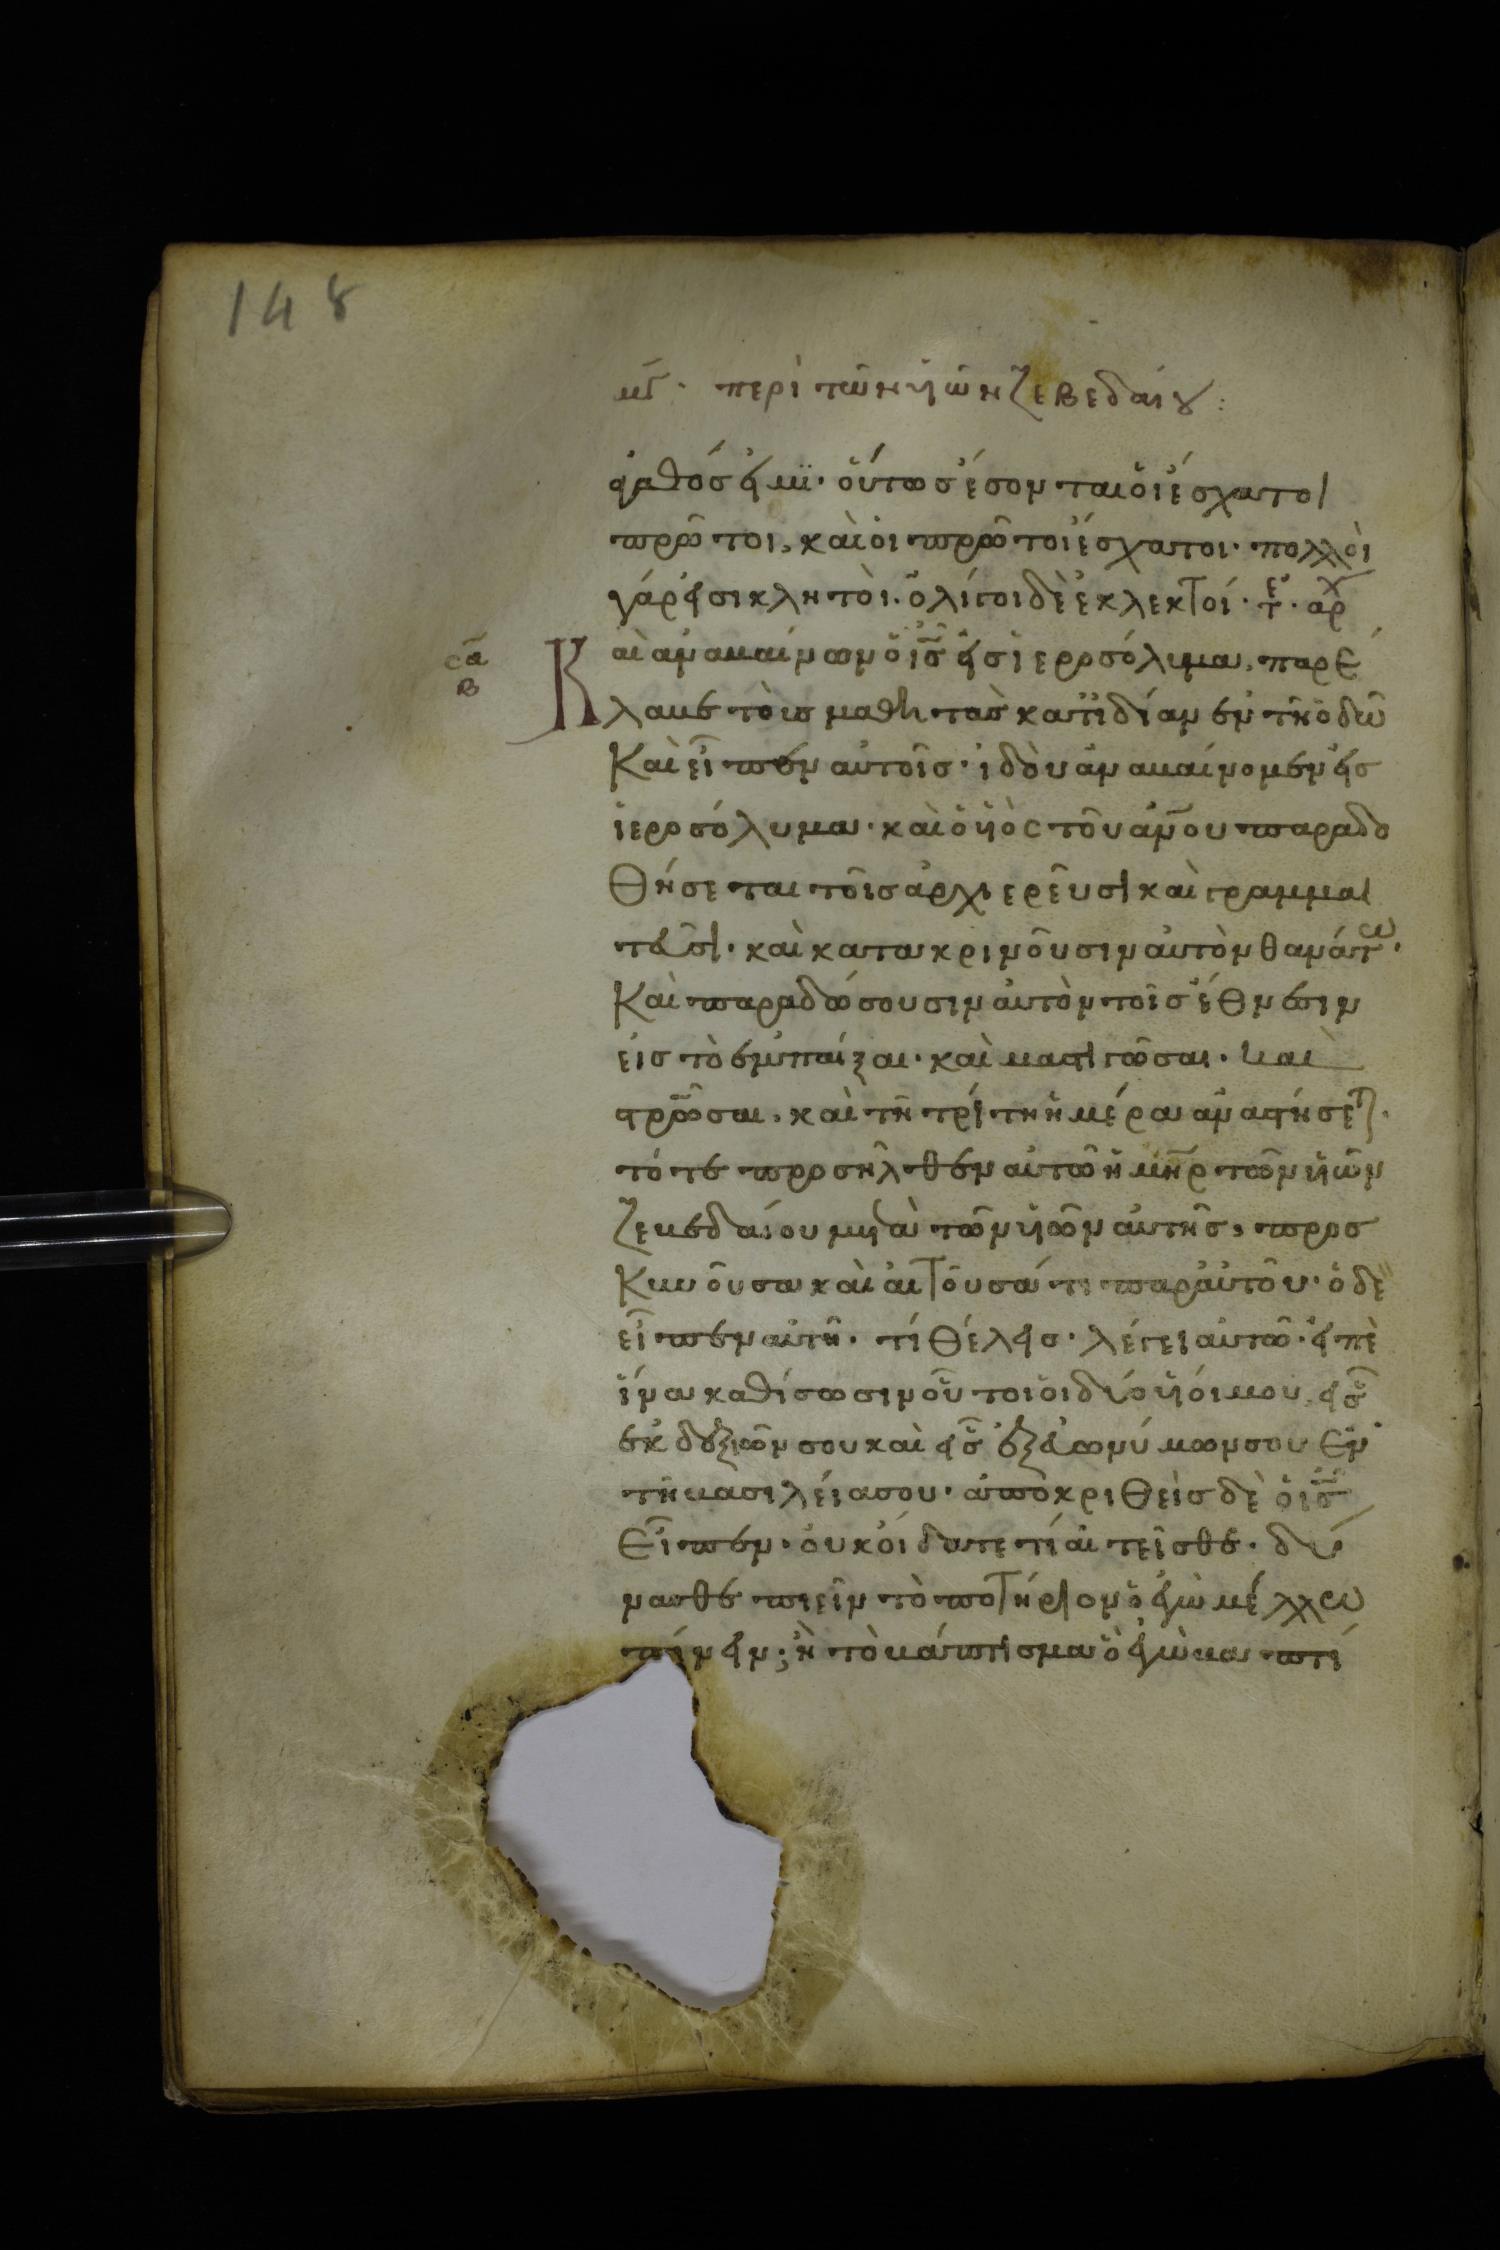 148
μγ· περὶ τῶν ὑῶν ζεβεδαίου:
ἀγαθός εἰμϊ· ὅυτωσ ἔσονται ὅι ἔσχατοι
πρῶτοι, καὶ ὁι πρῶτοι ἔσχατοι· πολλὸι
γάρ εἰσι κλητὸι· ὀλίγοι δὲ ἐκλεκτοί· τε· αρχ
σα β
Καὶ ἀναβαίνων ὁ ις εἰσ ἱεροσόλυμα, παρέ
λαβε τὸυσ μαθητὰσ κατϊδίαν ἐν τῆ ὁδῶ
Καὶ εἶπεν αὐτοῖσ· ἰδὸυ ἀναβαίνομεν εἰσ
ἱεροσόλυμα· καὶ ὁ ὑὸς τοῦ ανου παραδο
θήσεται τοῖσ ἀρχιερεῦσι καὶ γραμμα
τεῦσι· καὶ κατακρινοῦσιν αὐτὸν θανάτω·
Καὶ παραδώσουσιν ἀυτὸν τοῖσ ἔθνεσιν
εἰσ τὸ ἐμπαίξαι· καὶ μαστιγῶσαι· καὶ
στρῶσαι, καὶ τῆ τρίτη ἡμέρα ἀναστήσεται·
τότε προσῆλθεν αὐτῶ ἡ μηρ τῶν ὑῶν
ζεβεδαίου μετὰ τῶν ὑῶν αὐτῆσ, προσ
Κυνοῦσα καὶ ἀιτοῦσά τι παρἀυτοῦ· ὁ δὲ
εἶπεν αὐτῆ· τί θέλεισ· λέγει αὐτῶ· εἰπὲ
ἵνα καθίσωσιν οὗτοι ὁι δύο ὑόι μου, εἷσ
ἐκ δεξιῶν σου καὶ εἷσ ἐξ ἐυωνύμων σου ἐν
τῆ βασιλείασου· ἀποκριθεὶσ δὲ ὁ ις
Εἶπεν· ὀυκ ὀίδατε τί αἰτεῖσθε· δύ
νασθε πιεῖν τὸ ποτήριον ὃ ἐγὼ μέλλω
πίνειν; ἢ τὸ βάπτισμα ὃ ἐγὼ βαπτί